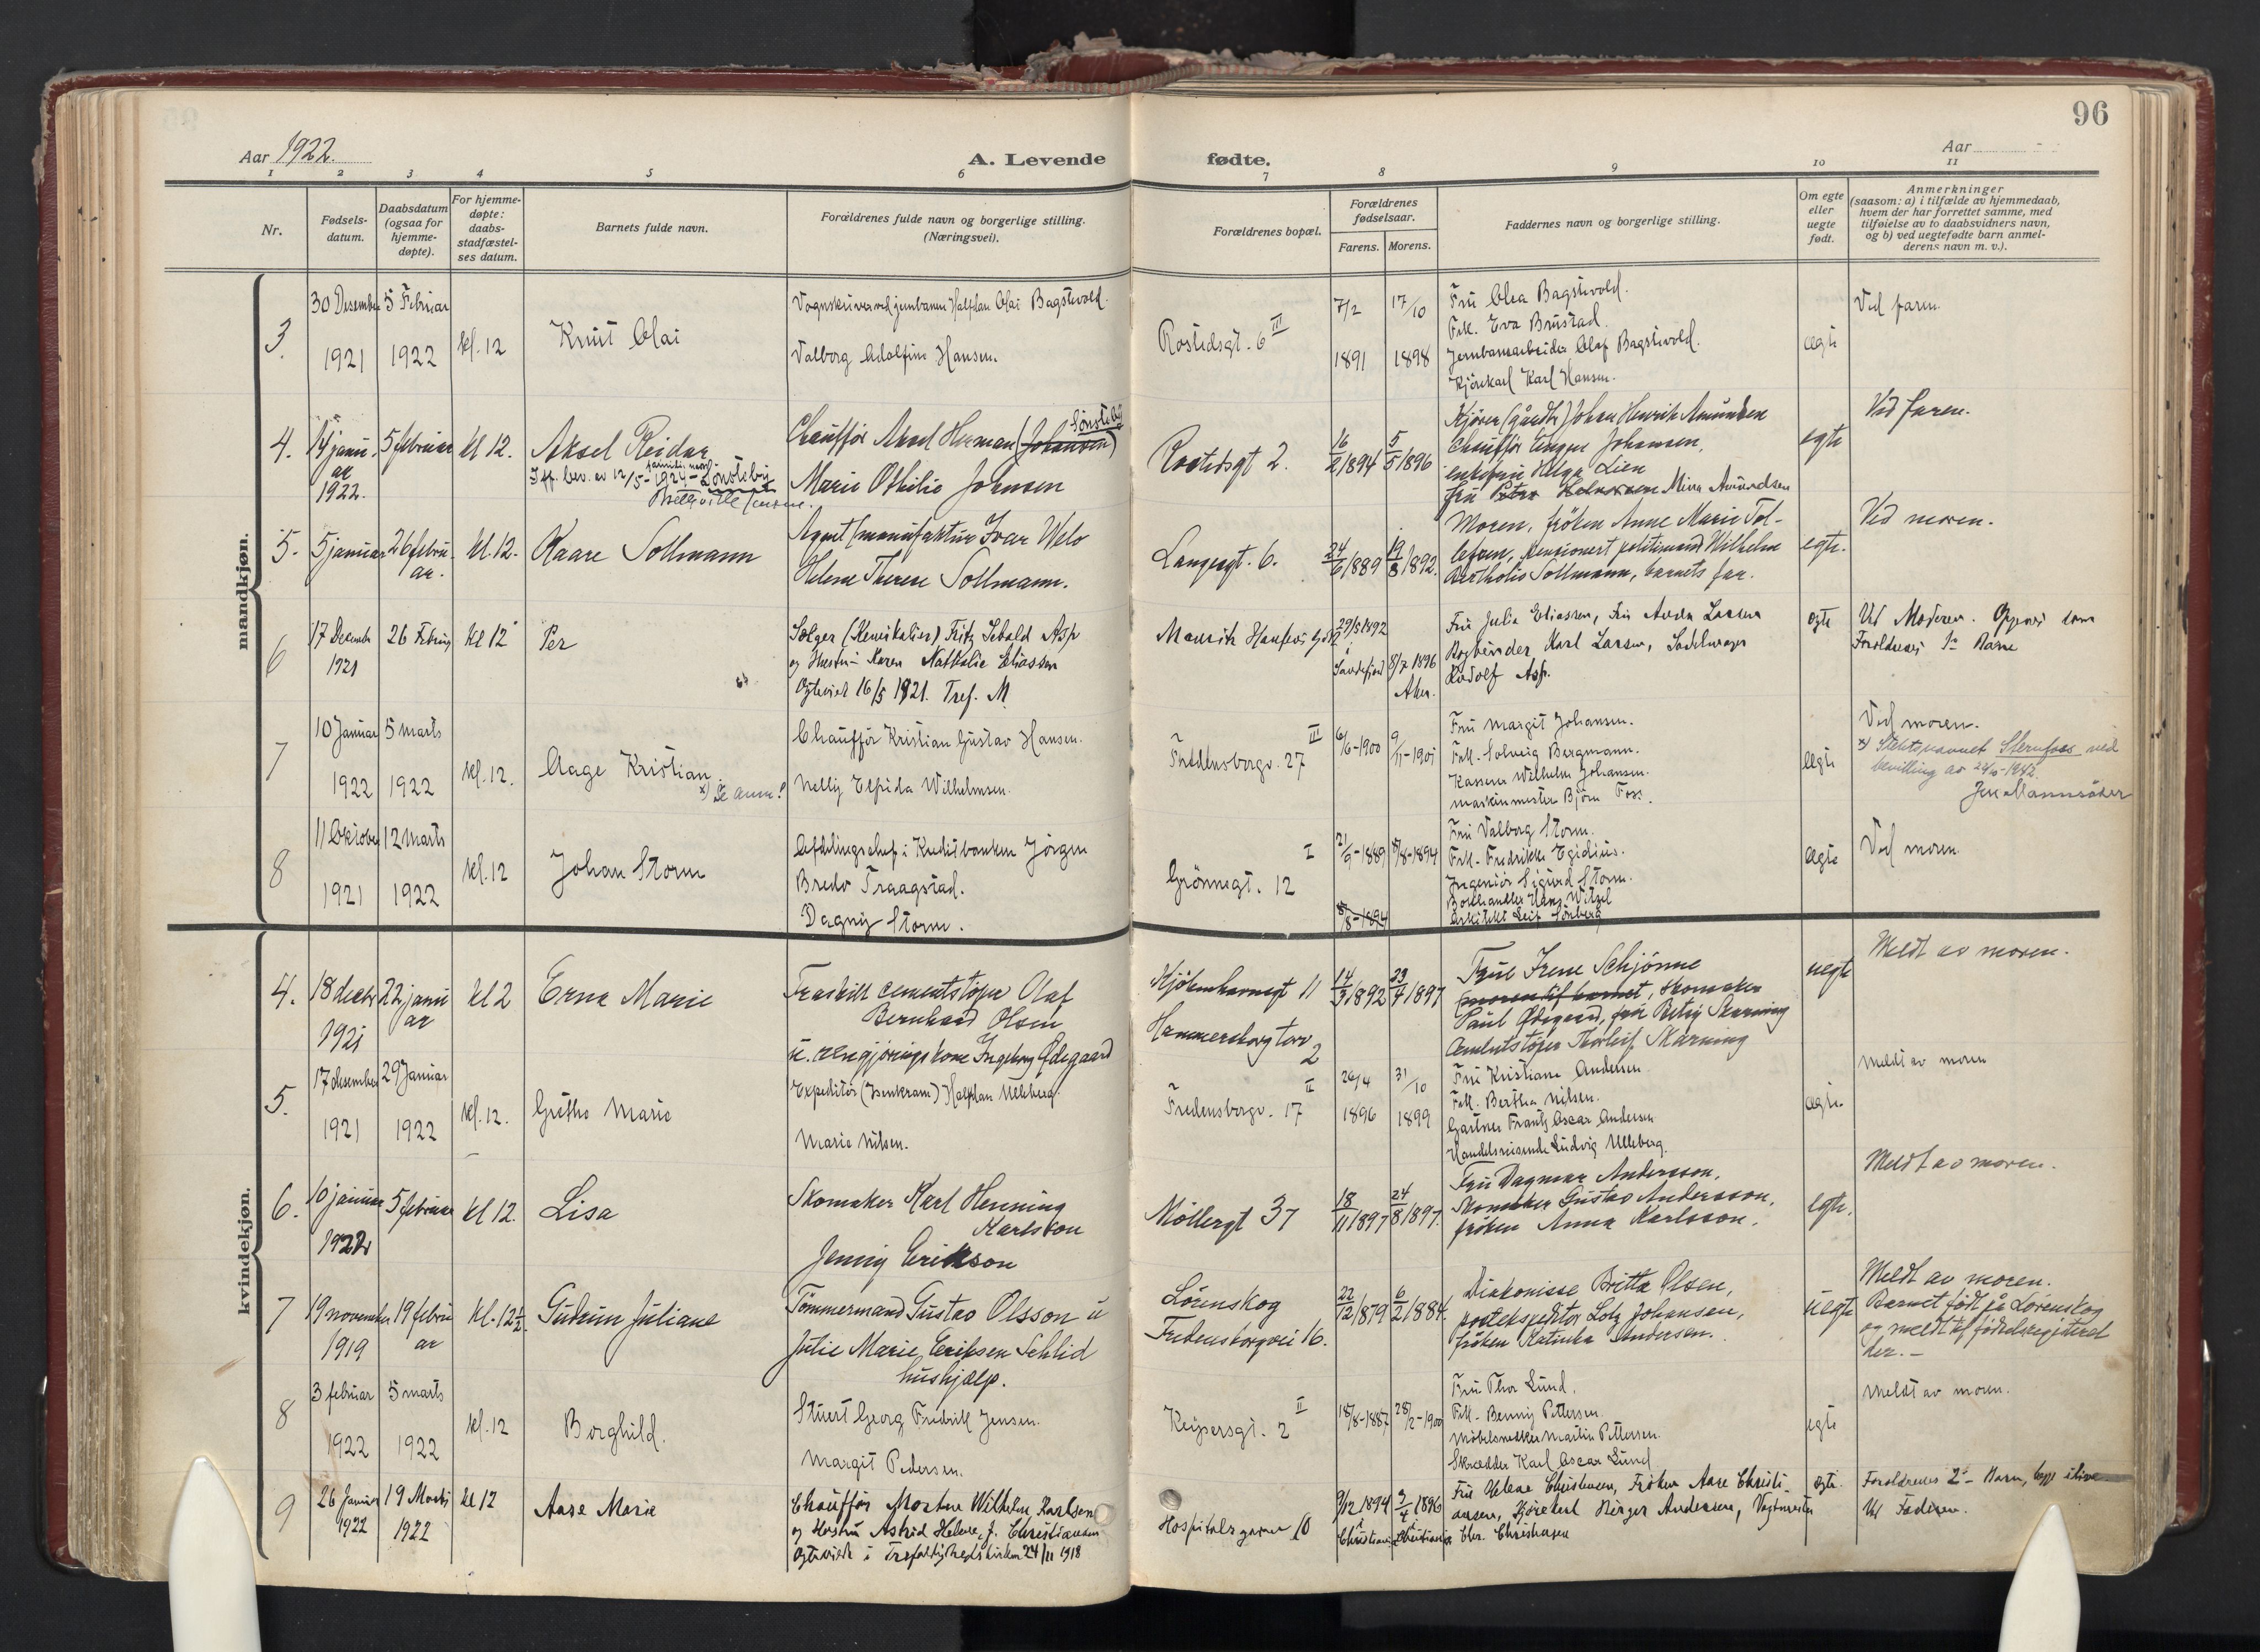 96
Aar 1922.
A. Levende fødte.
Aar
1 2 3 4 5 6 7 8 9 10 11
Nr.
Fødsels-
datum.
Daabsdatum
(ogsaa for
hjemme-
døpte).
For hjemme-
døpte:
daabs-
stadfæstel-
ses datum.
Barnets fulde navn.
Forældrenes fulde navn og borgerlige stilling.
(Næringsvei).
Forældrenes bopæl.
Forældrenes
fødselsaar.
Farens. Morens.
Faddernes navn og borgerlige stilling.
Om egte
eller
uegte
født.
Anmerkninger
(saasom: a) i tilfælde av hjemmedaab,
hvem der har forrettet samme, med
tilføielse av to daabsvidners navn,
og b) ved uegtefødte barn anmel-
derens navn m. v.).
mandkjøn.
3.
30 Desember
1921
5 Februar
1922
kl. 12
Knut Olai
Vognskriver ved jernbanen Halfdan Olai Bagstevold.
Valborg Adolfine Hansen.
Rostedsgt. 6 III
7/2
1891
17/10
1898
Fru Olea Bagstevold.
Frk. Eva Brustad.
Jernbanearbeider Olaf Bagstevold.
Kjørekarl Karl Hansen.
ægte
Ved faren.
4.
14 janu-
ar
1922.
5 februar
kl 12.
Aksel Reidar
familienavn
Iflg. bev. av 12/5-1924 - Sønsteby
Chauffør Aksel Herman (Johansen)
Sønsteby
Marie Othilie Johnsen
Rostedsgt 2.
16/2 1894
5/5 1896
Kjører (gaardbr) Johan Henrik Amundsen
Chauffør Johansen,
enkefru Helga Lien
fru Mina Amundsen
egte
Ved faren.
5.
5 januar
26 febru-
ar.
kl. 12.
Kaare Sollmann
Agent (manufaktur) Ivar Welo
Helene Therese Sollmann.
Langesgt. 6.
24/6 1889
19/8 1892.
Moren, frøken Anne Marie Tol-
lefsen, pensionert politimand Wilhelm
Bertholio Sollmann, barnets far.
egte.
Ved moren.
6
17 December
1921
26 Februar
kl 12
Per
Sælger (Kemikalier) Fritz Sebald Asp
og Hustru Karen Nathalie Eliassen
Ogteviet 16/5 1921. Tref. M.
Mauritz Hansens gt 2
29/5 1892
i
Sandefjord
8/7 1896
Aker.
Fru Julia Eliassen, Fru Anda Larsen
Bogbinder Karl Larsen, Sadelmager
Rudolf Asp.
ogte
Ved Moderen. Opgives som
Foreldrenes 1ste Barn
7
10 Januar
1922
5 marts
1922
kl. 12.
Aage Kristian
x) Se anm!
Chauffør Kristian Gustav Hansen.
Nelly Elfrida Wilhelmsen.
Fredensborgv. 27 III
6/6-1900
9/11-1901
Fru Margit Johansen.
Frk. Solveig Bergmann.
Kasserer Wilhelm Johansen.
maskinmester Bjørn Foss.
ægte
Ved moren.
x) Slektsnavnet Sternfoss ved
bevilling av 24/10-1942.
8
11 Oktober
1921
12 Marts
1922
kl. 12
Johan Storm
Afdelingschef i Kreditbanken Jørgen
Bredo Traagstad.
Dagny Storm.
Grønnegt. 12 I
21/9-1889
8/8-1894
8/8-1894
Fru Valborg Storm.
Frk. Fredrikke Egidius.
Ingeniør Sigurd Storm.
Bokhandler Hans Witzel
Arkitekt Leif Sønberg
ægte
Ved moren.
kvindekjøn.
4.
18 decbr
1921
22 janu
ar
kl 2
Erna Marie
Fraskilt cementstøper Olaf
Bernhard Olsen
u. rengjøringskone Ingeborg Ødegaard
Kjøbenhavnsgt 11
Hammersborg torv
2
14/3 1892
23/7 1897
Frue Irene Schjønne
moren til barnet, skomaker
Paul Ødegaard, frue Betsy Skarning
Cementstøper Thorleif Skarning
uegte
Meldt av moren.
5.
17 desember
1921
29 Januar
1922
kl. 12.
Grethe Marie
Expeditør (Isenkram) Halfdan Ulleberg.
Marie Nilsen.
Fredensborgv. 17 II
26/4
1896
31/10
1899
Fru Kristiane Andersen
Frk. Bertha Nilsen.
Gartner Frantz Oscar Andersen
Handelsreisende Ludvig Ulleberg.
ægte
Meldt av moren
6.
10 januar
1922
5 februar
kl 12.
Lisa
Skomaker Karl Henning
Karlsson
Jenny Erikson
Møllergt 37
18/11 1897
24/8 1897.
Fru Dagmar Andersson,
Skomaker Gustav Andersson,
frøken Anna Karlsson.
egte.
Meldt av moren.
7
19 november
1919
19 febru
ar
kl. 12 1/2.
Gudrun Juliane
Tømmermand Gustav Olsson u
Julie Marie Eriksen Schlid
hushjælp.
Lørenskog
Fredensborgvei 16.
22/12 1879
6/2 1884.
Diakonisse Britta Olsen,
postekspeditør Lotz Johansen,
frøken Katinka Andersen.
uegte
Meldt av moren.
Barnet født på Lørenskog
og meldt til fødselsregisteret
der. -
8
3 februar
1922
5 marts
1922
kl. 12
Borghild.
Stuert Georg Fredrik Jensen.
Margit Pedersen.
Keysersgt. 2 II
18/8-1887
28/2-1900
Fru Thor Lund.
Frk. Benny Pettersen.
Møbelsnekker Martin Pettersen.
Skrædder Karl Oscar Lund
egte
Meldt av moren.
9
26 Januar
1922
19 Marts
1922
kl 12
Aase Marie
Chauffør Morten Wilhelm Karlsen
og Hustru Astrid Helene, f. Christiansen
Ogteviede i Trefoldighedskirken 24/11 1918
Hospitalsgaten 10
9/12 1894
i
Christiania
9/4 1896
i
Christiania
Fru Helene Christensen, Frøken Aase Christi-
ansen, Kjørekarl Birger Andersen, Vogtmester
Chr. Christiansen
ogte.
Foreldrenes 2de Barn, begge i live
Ved Faderen.